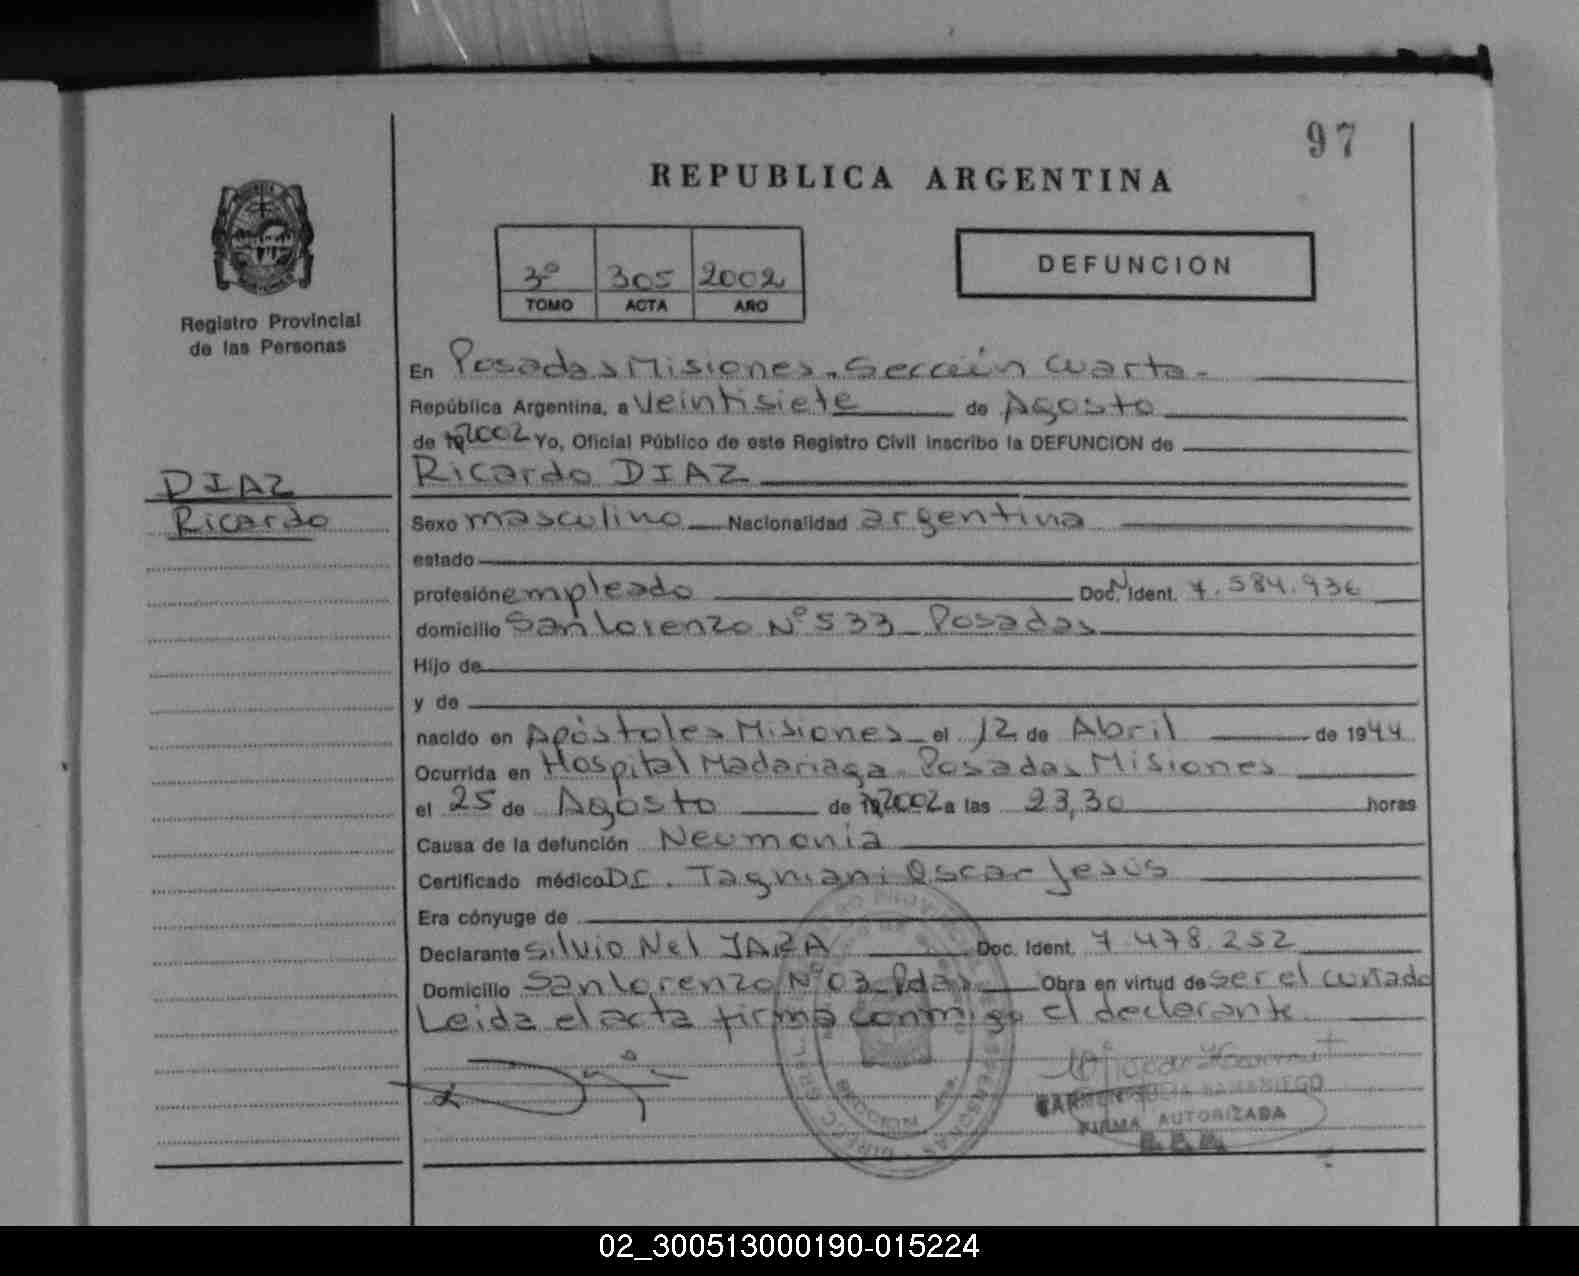 97
REPUBLICA ARGENTINA
3º 305 2002
TOMO ACTA AÑO
DEFUNCION
Registro Provincial
de las Personas
En Posadas Misiones. Sección Cuarta.
República Argentina, a Veintisiete de Agosto
de 2002 Yo, Oficial Público de este Registro Civil inscribo la DEFUNCION de
Ricardo DIAZ
DIAZ
Ricardo
Sexo masculino Nacionalidad argentina
estado
profesión empleado Doc. Ident. 7.584.936
domicilio San Lorenzo Nº 533 Posadas
Hijo de
y de
nacido en Apóstoles Misiones el 12 de Abril de 1944
Ocurrida en Hospital Madariaga. Posadas Misiones
el 25 de Agosto de 2002 a las 23,30 horas
Causa de la defunción Neumonia
Certificado médico Dr. Tagniani Oscar Jesús
Era cónyuge de
Declarante Silvio Nel JARA Doc. Ident. 7.478.252
Domicilio San Lorenzo Nº 03 Pdas Obra en virtud de ser el cuñado
Leida el acta firma conmigo el declarante
FIRMA AUTORIZADA
02_300513000190-015224